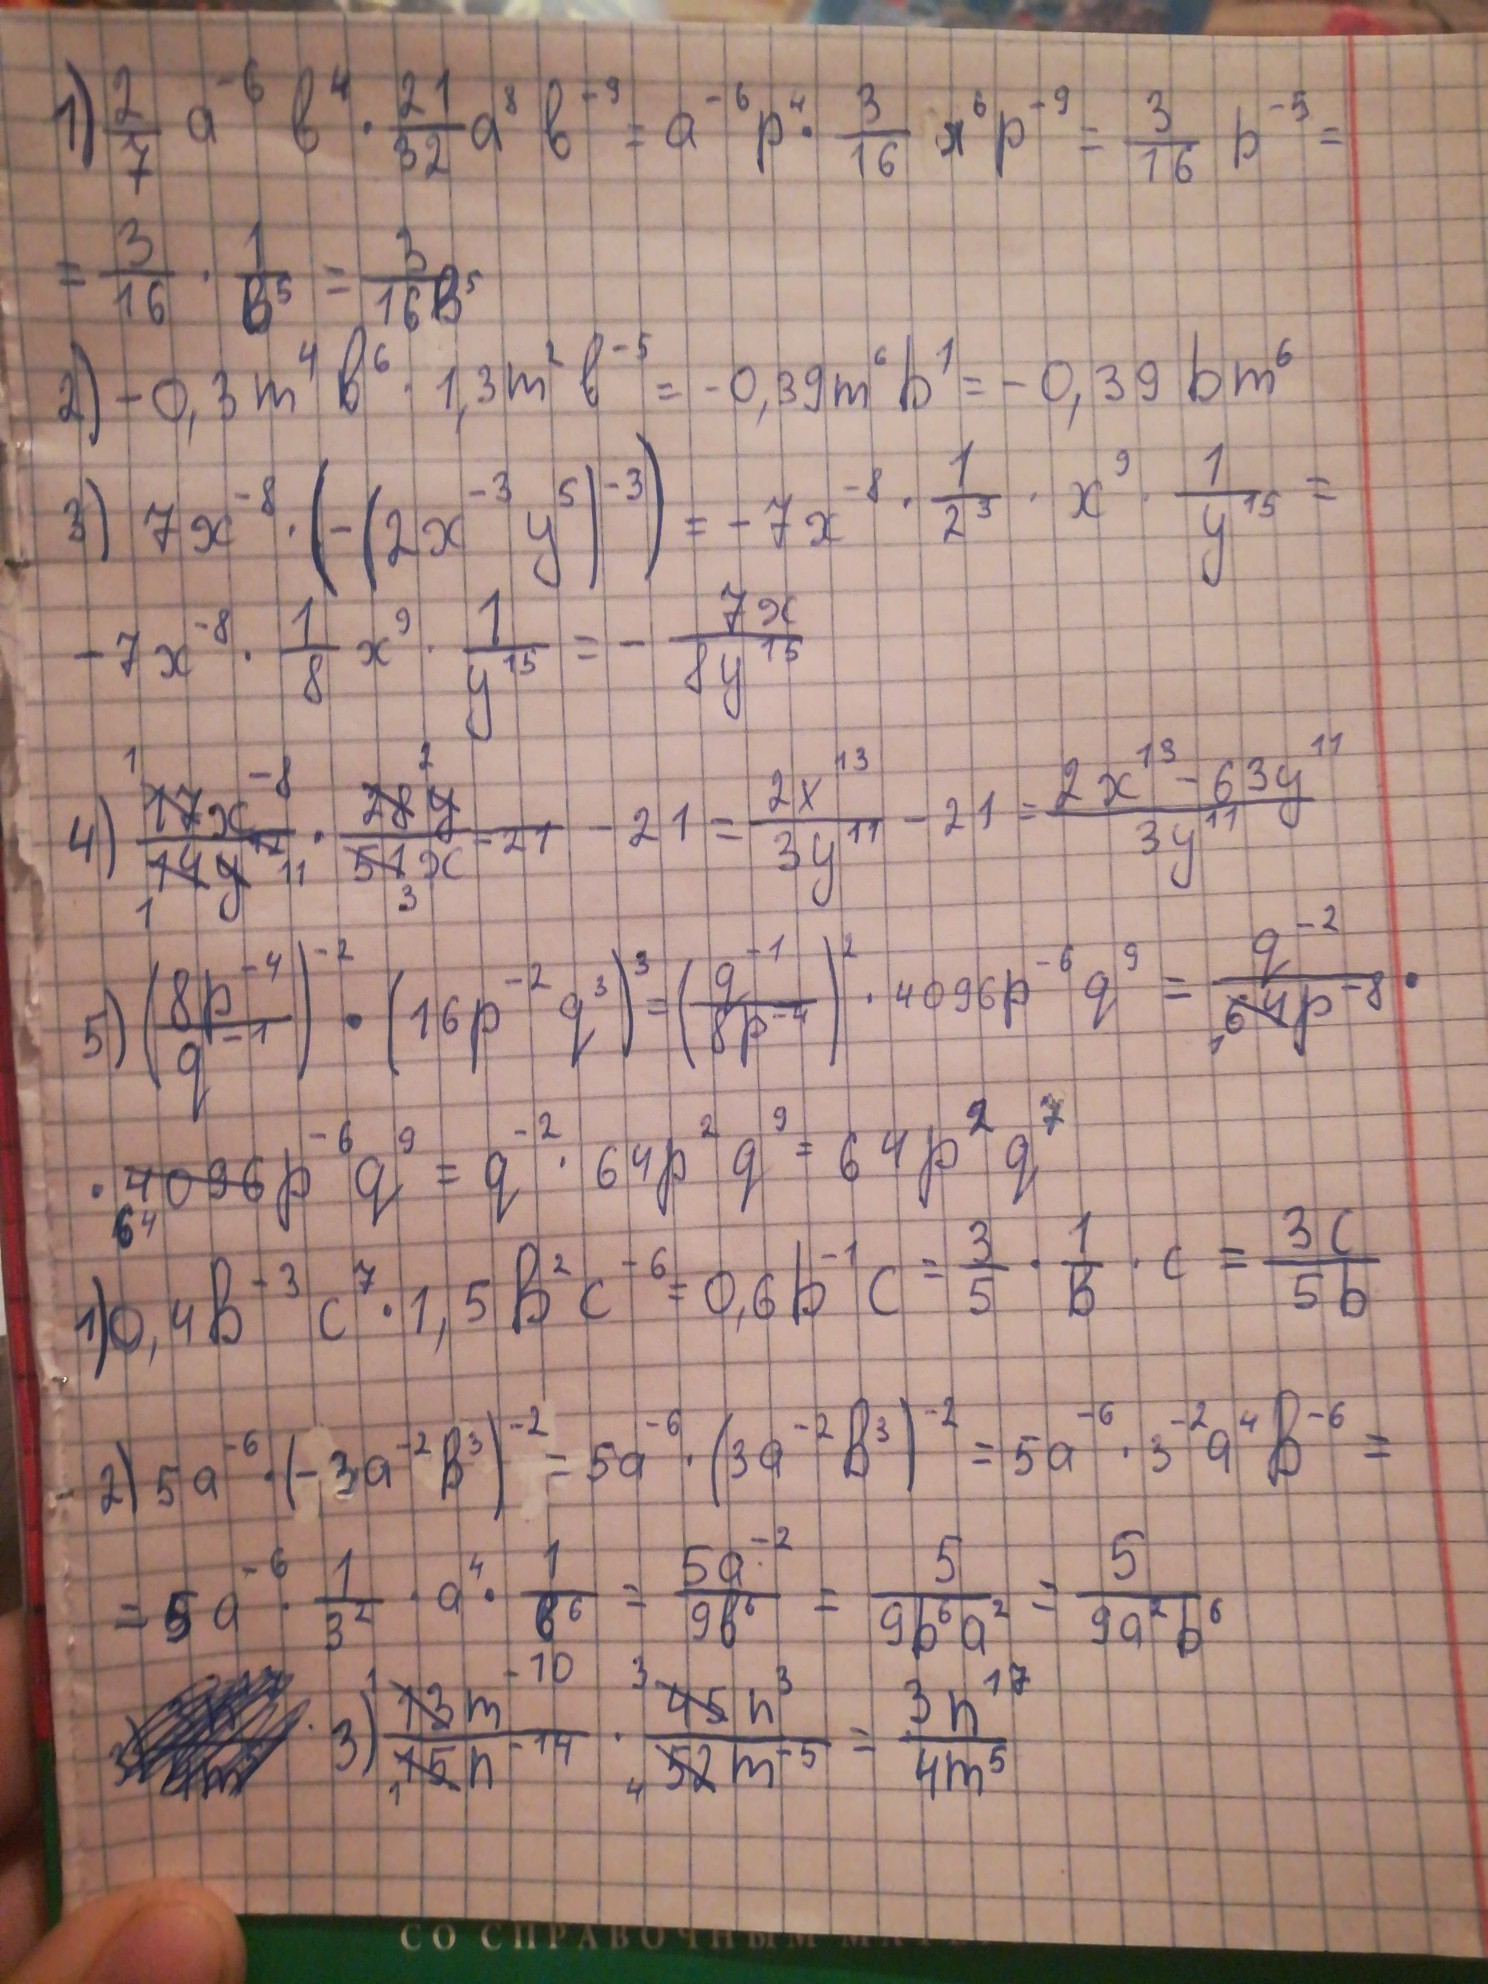 1) 2/7 a⁻⁶ b⁴ · 21/32 a⁸ b⁻⁹ = a⁻⁶ p⁴ · 3/16 x⁶ p⁻⁹ = 3/16 b⁻⁵ =
= 3/16 · 1/b⁵ = 3/16b⁵
2) -0,3m⁴ b⁶ · 1,3m² b⁻⁵ = -0,39m⁶ b¹ = -0,39 bm⁶
3) 7x⁻⁸ · (-(2x⁻³ y⁵)⁻³) = -7x⁻⁸ · 1/2³ · x⁹ · 1/y¹⁵ =
-7x⁻⁸ · 1/8 x⁹ · 1/y¹⁵ = - 7x/8y¹⁵
4) 17x⁻⁸/14y¹² · 28y/51x⁻²¹ - 21 = 2x¹³/3y¹¹ - 21 = (2x¹³ - 63y¹¹)/3y¹¹
5) (8p⁻⁴/q⁻¹)⁻² · (16p⁻² q³)³ = (q⁻¹/8p⁻⁴)² · 4096p⁻⁶ q⁹ = q⁻²/64p⁻⁸ ·
· 4096p⁻⁶ q⁹ = q⁻² · 64p² q⁹ = 64p² q⁷
1) 0,4b⁻³ c⁷ · 1,5b² c⁻⁶ = 0,6b⁻¹ c = 3/5 · 1/b · c = 3c/5b
2) 5a⁻⁶ · (-3a⁻² b³)⁻² = 5a⁻⁶ · (3a⁻² b³)⁻² = 5a⁻⁶ · 3⁻² a⁴ b⁻⁶ =
= 5a⁻⁶ · 1/3² · a⁴ · 1/b⁶ = 5a⁻²/9b⁶ = 5/9b⁶a² = 5/9a²b⁶
3) 13m⁻¹⁰/15n⁻¹⁴ · 45n³/52m⁻⁵ = 3n¹⁷/4m⁵
СО СПРАВОЧНЫМ